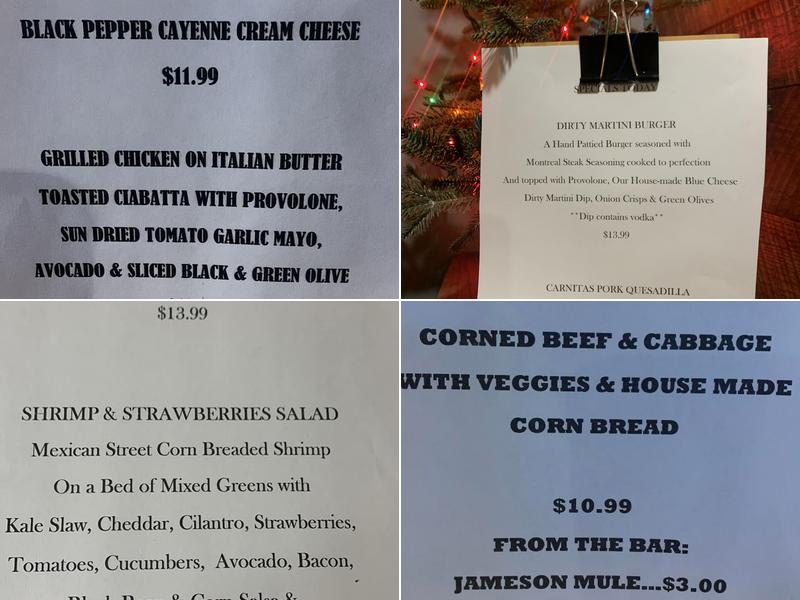 BLACK PEPPER CAYENNE CREAM CHEESE
$11.99
GRILLED CHICKEN ON ITALIAN BUTTER
TOASTED CIABATTA WITH PROVOLONE,
SUN DRIED TOMATO GARLIC MAYO,
AVOCADO & SLICED BLACK & GREEN OLIVE
SPECIALS TODAY
DIRTY MARTINI BURGER
A Hand Pattied Burger seasoned with
Montreal Steak Seasoning cooked to perfection
And topped with Provolone, Our House-made Blue Cheese
Dirty Martini Dip, Onion Crisps & Green Olives
**Dip contains vodka**
$13.99
CARNITAS PORK QUESADILLA
$13.99
SHRIMP & STRAWBERRIES SALAD
Mexican Street Corn Breaded Shrimp
On a Bed of Mixed Greens with
Kale Slaw, Cheddar, Cilantro, Strawberries,
Tomatoes, Cucumbers, Avocado, Bacon,
Black Bean & Corn Salsa &
CORNED BEEF & CABBAGE
WITH VEGGIES & HOUSE MADE
CORN BREAD
$10.99
FROM THE BAR:
JAMESON MULE...$3.00